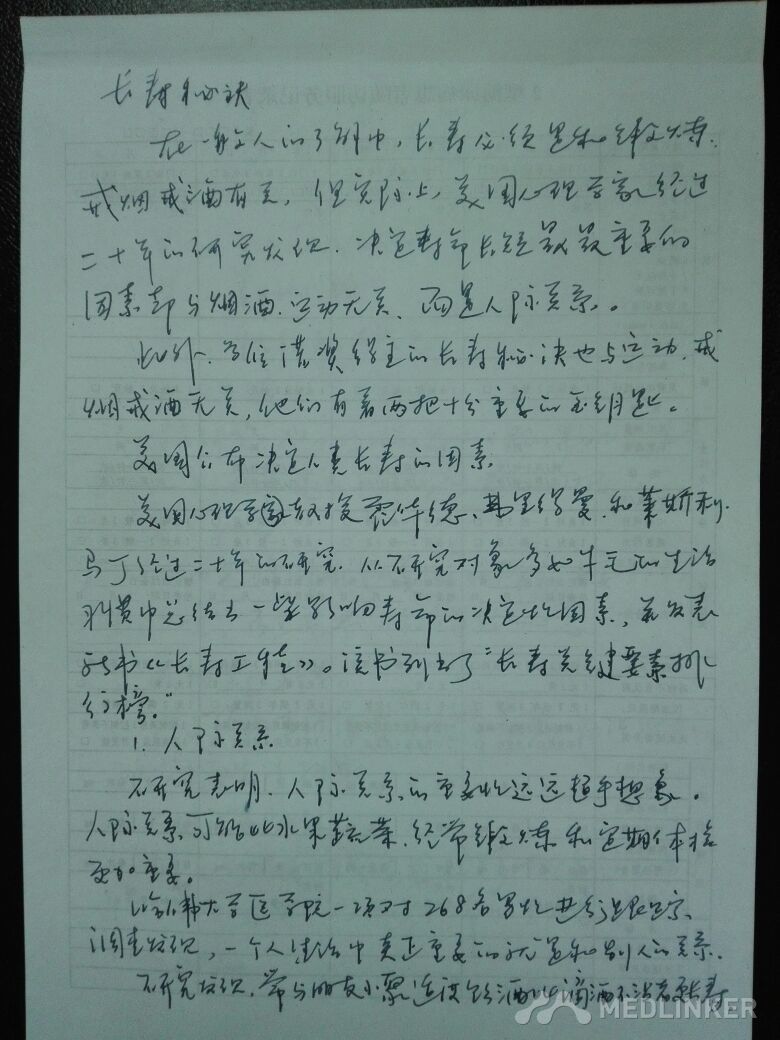 长寿秘诀
在一般人的了解中，长寿必须是和锻炼、
戒烟戒酒有关，但实际上，美国心理学家经过
二十年的研究发现，决定寿命长短最最重要的
因素却与烟酒、运动无关，而是人际关系。
此外，多位诺奖得主的长寿秘诀也与运动、戒
烟戒酒无关，他们有着两把十分重要的金钥匙。
美国公布决定人类长寿的因素
美国心理学家教授霍华德、弗里得曼和莱斯利、
马丁经过二十年的研究，从研究对象多如牛毛的生活
习惯中总结出一些影响寿命的决定性因素，并发表
新书《长寿工程》。该书列出了“长寿关键要素排
行榜。”
1. 人际关系
研究表明，人际关系的重要性远远超乎想象。
人际关系可能比水果蔬菜、经常锻炼和定期体检
更加重要。
哈佛大学医学院一项对268名男性进行跟踪
调查发现，一个人生活中真正重要的就是和别人的关系。
研究发现，常与朋友小聚适度饮酒比滴酒不沾者更长寿
MEDLINKER